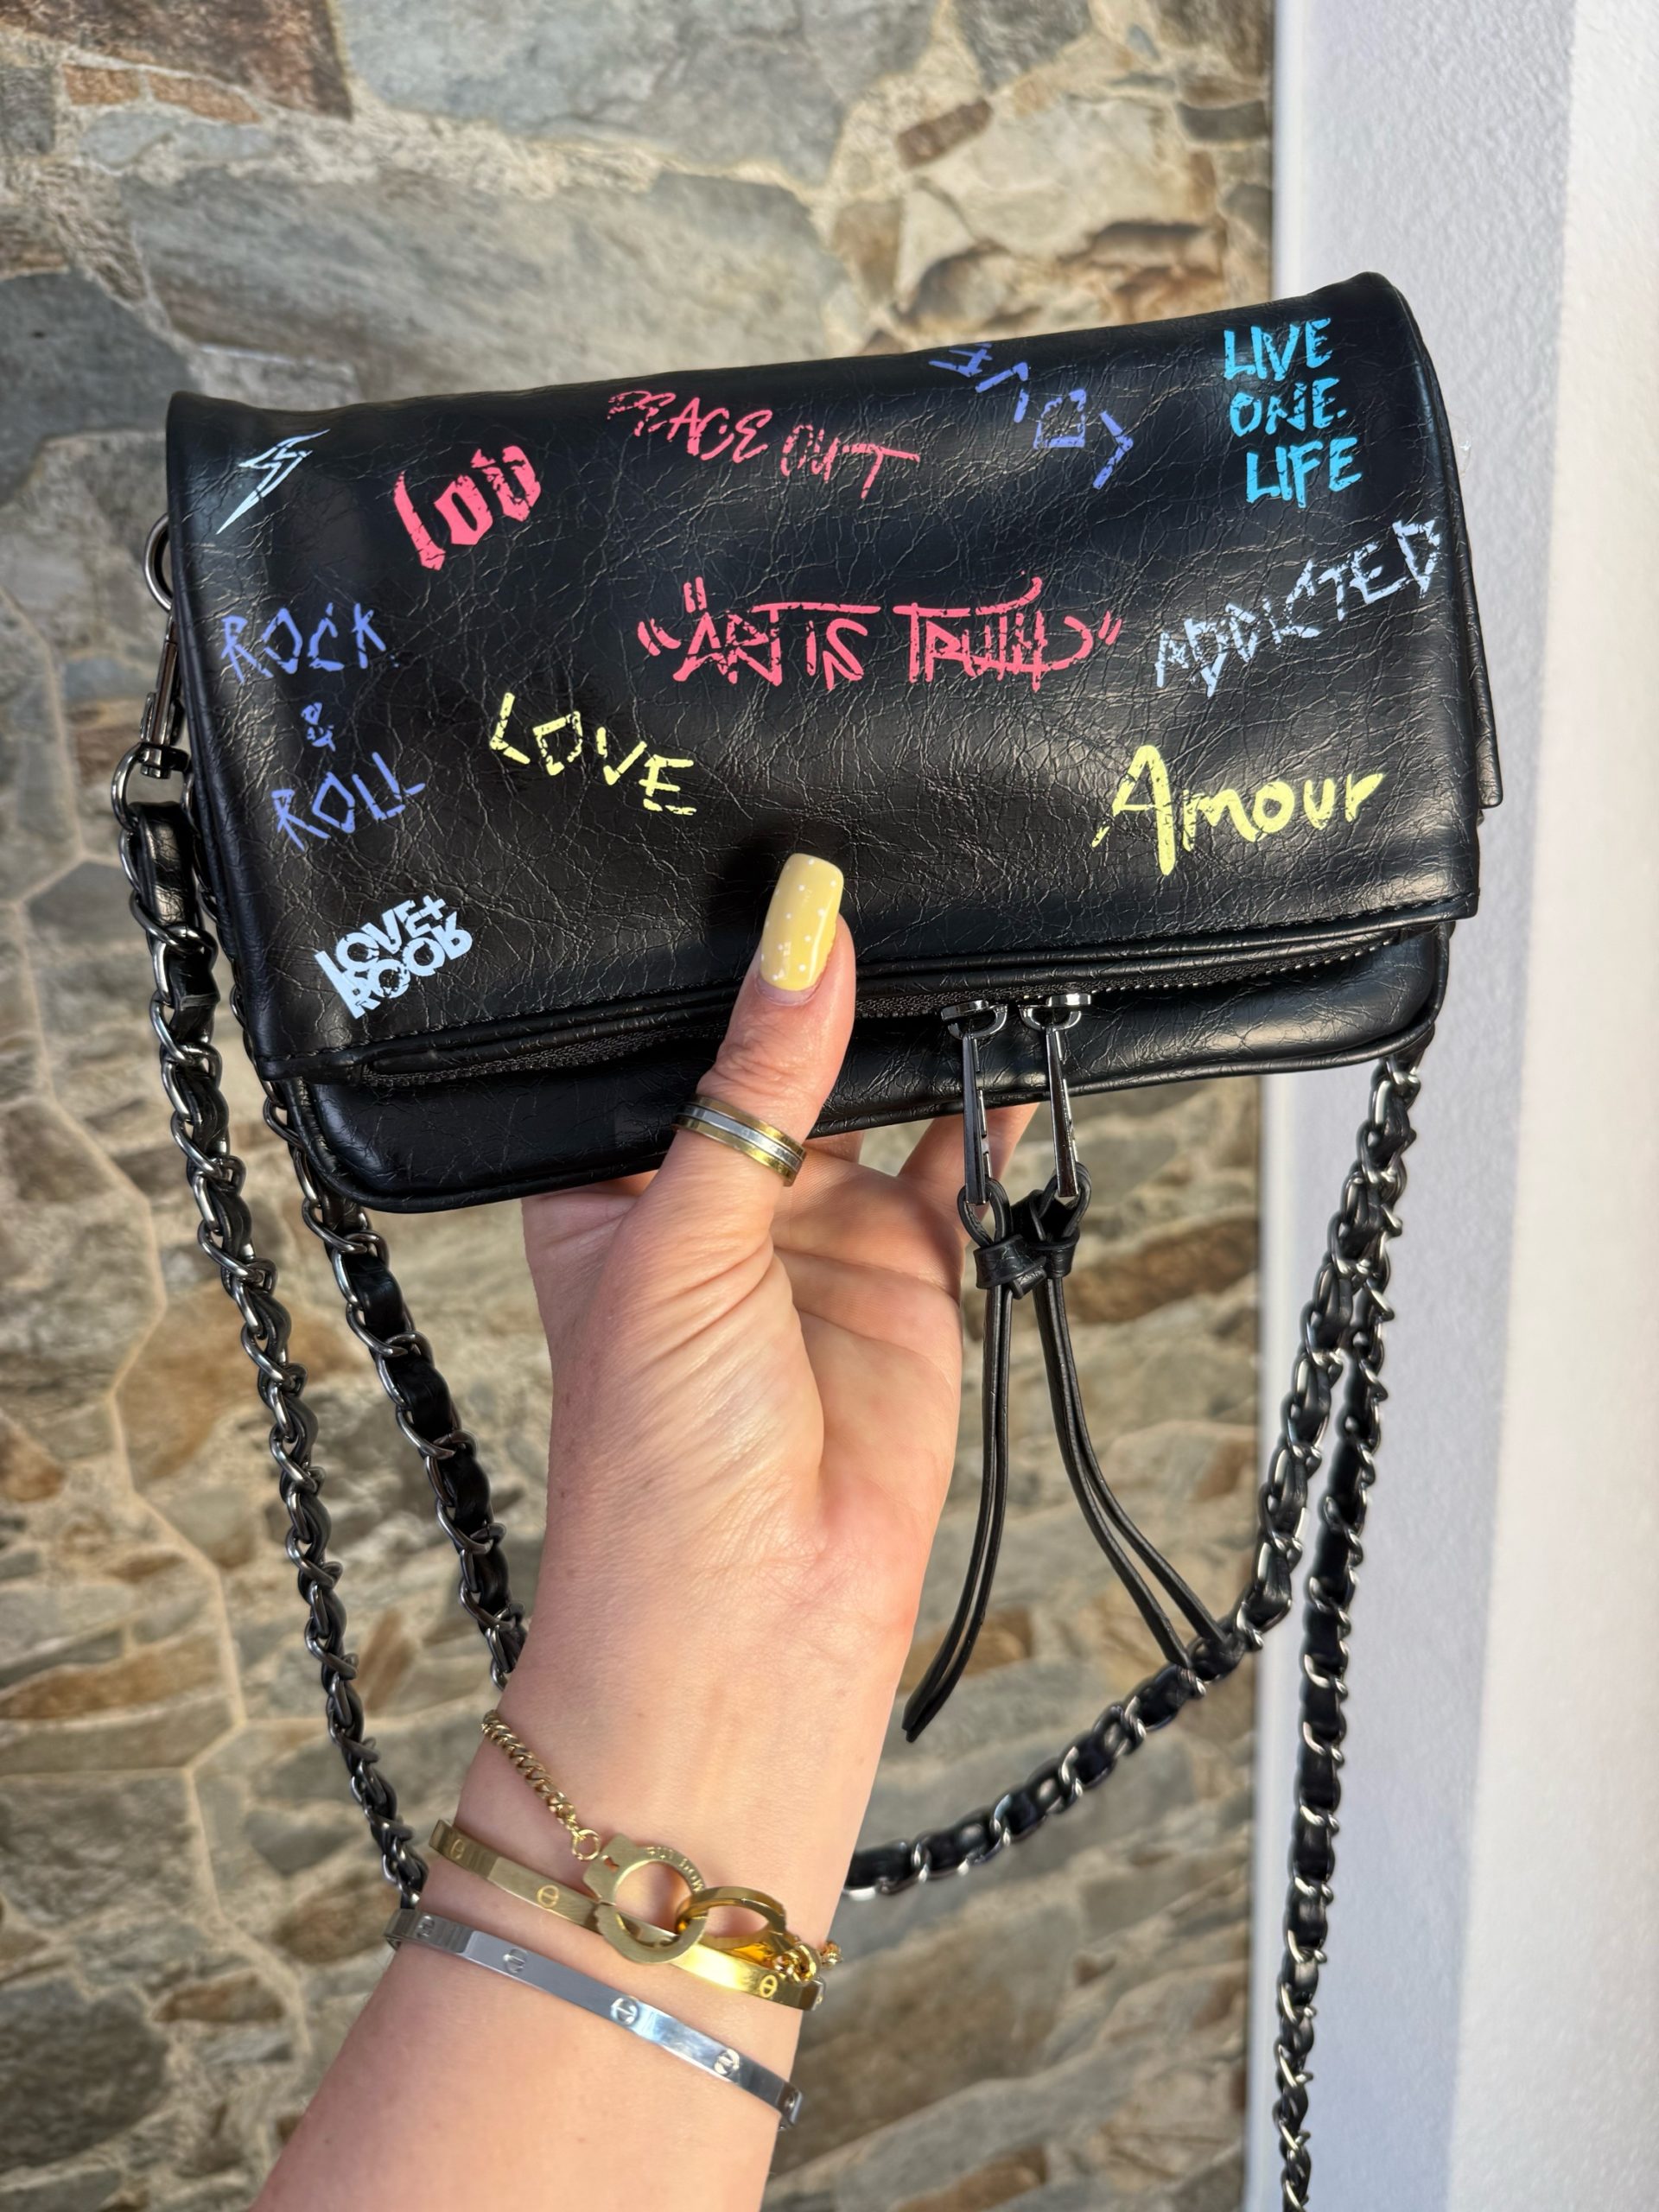 PEACE OUT
LIVE
ONE
LIFE
ROCK
&
ROLL
"ART IS TRUTH"
ADDICTED
LOVE
Amour
LOVE+